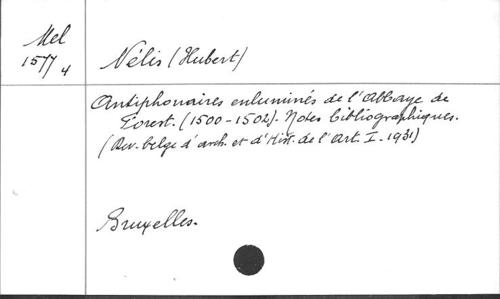 Mel
1577
4
Nélis (Hubert)
Antiphonaires enluminés de l'Abbaye de
Forest. (1500-1502). Notes bibliographiques.
(Rev. belge d'arch. et d'Hist. de l'Art. I. 1931)
Bruxelles.